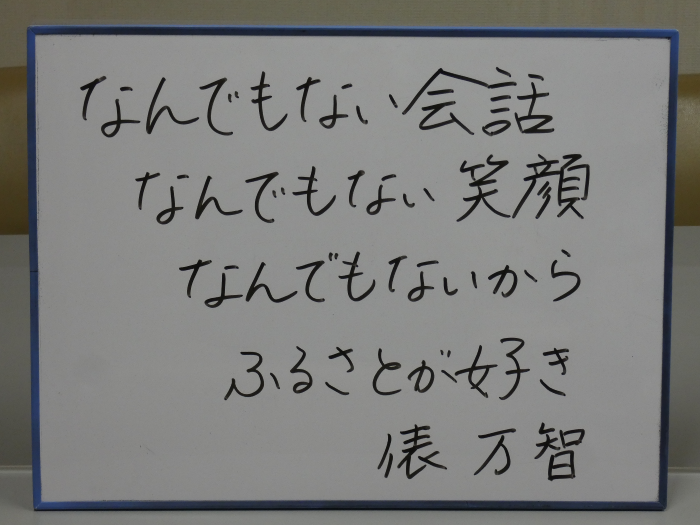 なんでもない会話
なんでもない笑顔
なんでもないから
ふるさとが好き
俵万智